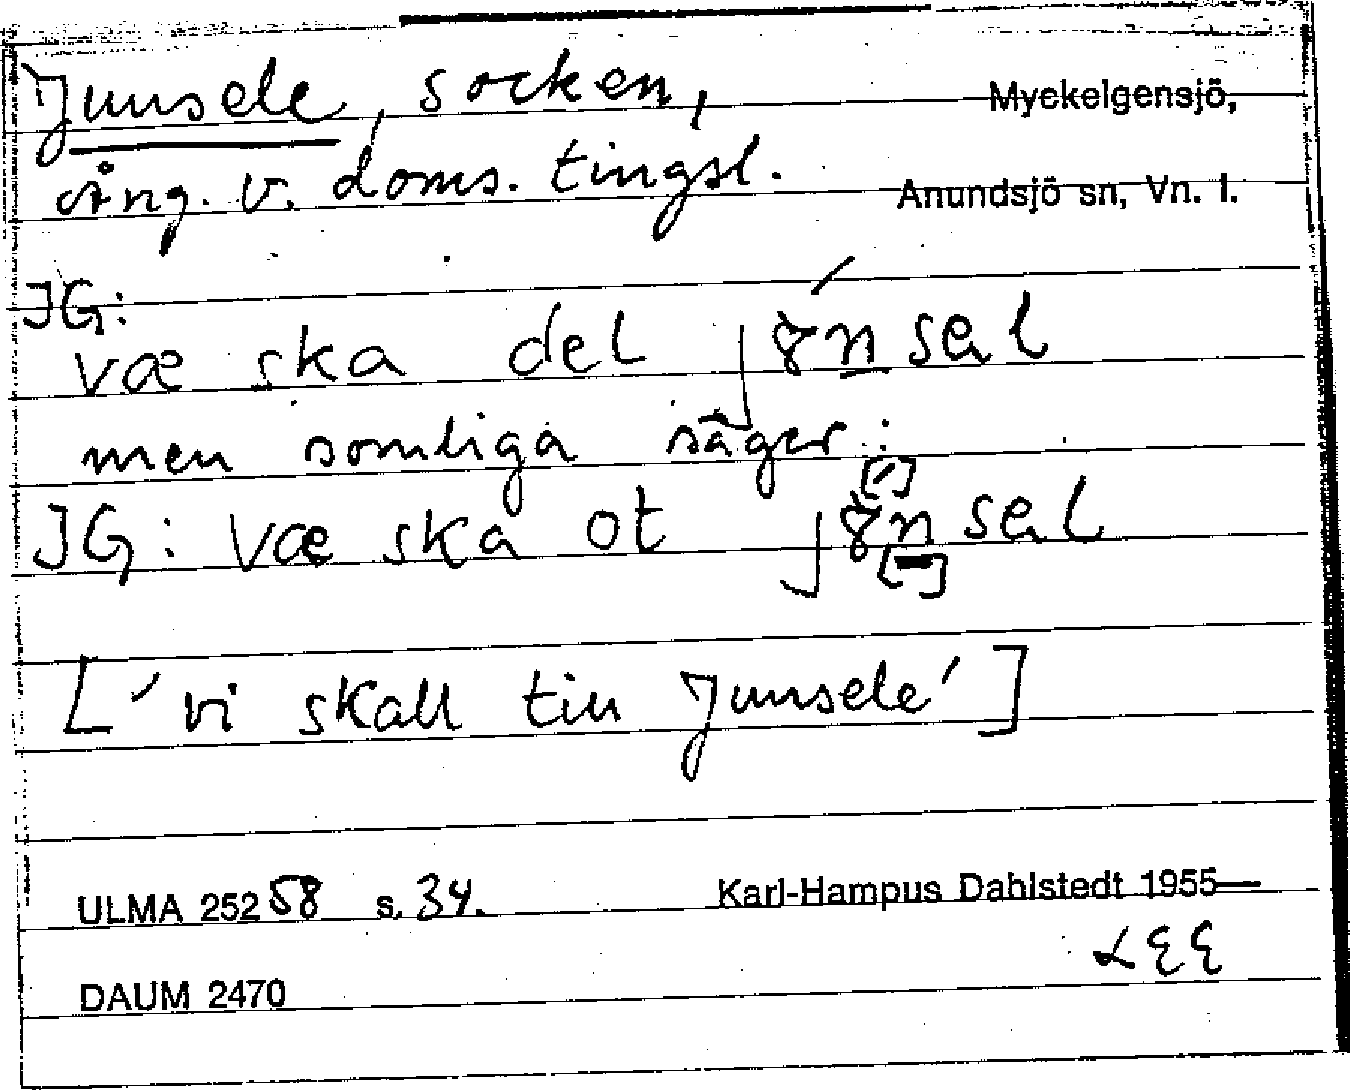 Junsele, socken,
Myckelgensjö,
Ång. v. doms. tingsl.
Anundsjö sn, Vn. l.
JG:
væ ska del
men somliga säger:
JG: væ ska ot
['vi skall till Junsele']
ULMA 25258 s. 34.
Karl-Hampus Dahlstedt 1955—
DAUM 2470